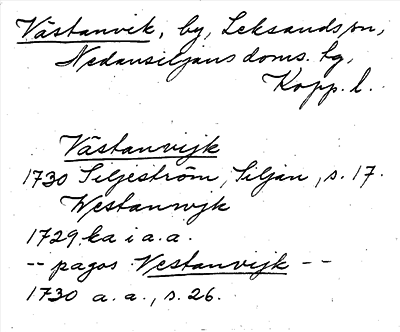 Västanvik, by, Leksands sn,
Nedansiljans doms. tg,
Kopp. l.
Västanvijk
1730 Siljeström, Siljan, s. 17.
Westanwyk
1729 ka i a.a.
-- pagos Vestanvijk --
1730 a. a., s. 26.